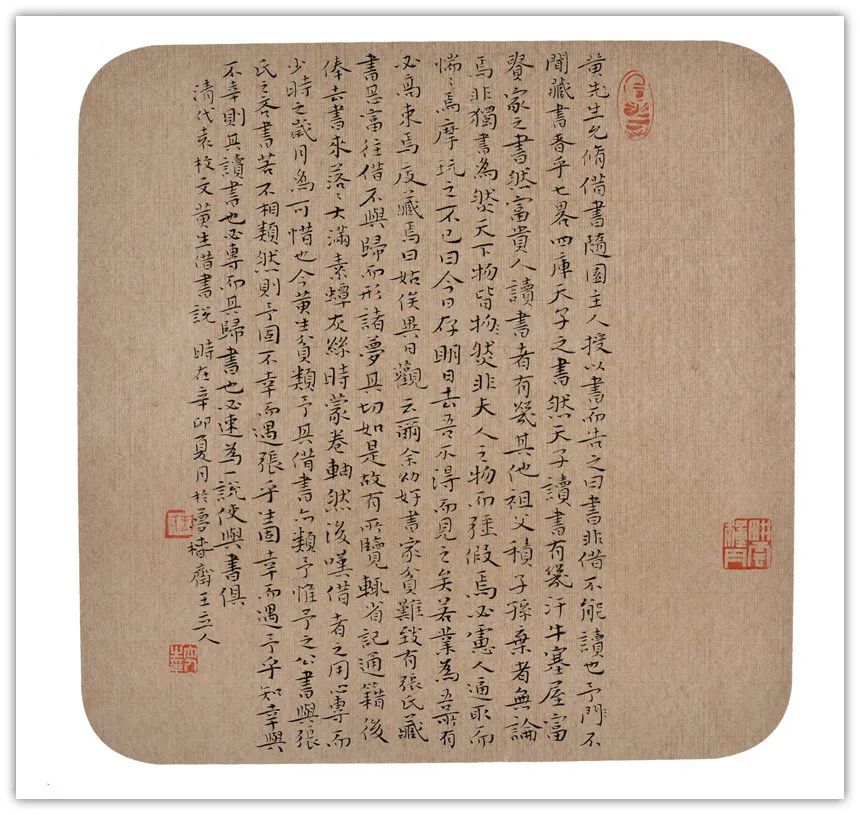 黄先生允脩借書隨園主人授以書而告之曰書非借不能讀也予門不
聞藏書者乎七畧四庫天子之書然天子讀書有幾汗牛塞屋富
貴家之書然富貴人讀書者有幾其他祖父積子孫棄者無論
焉非獨書為然天下物皆物然非夫人之物而彊假焉必慮人逼取而
惴〻焉摩玩之不已曰今日存明日去吾不得而見之矣若業為吾所有
必高束焉庋藏焉曰姑俟異日觀云爾余幼好書家貧難致有張氏藏
書甚富往借不與歸而形諸夢其切如是故有所覽輒省記通籍後
俸去書來落〻大滿素蟫灰絲時蒙卷軸然後嘆借者之用心專而
少時之歲月為可惜也今黄生貧類予其借書亦類予惟予之公書與張
氏之吝書若不相類然則予固不幸而遇張乎生固幸而遇予乎知幸與
不幸則其讀書也必專而其歸書也必速為一說使與書俱
清代袁枚文黄生借書說 時在辛卯夏月於夢椿齋王立人